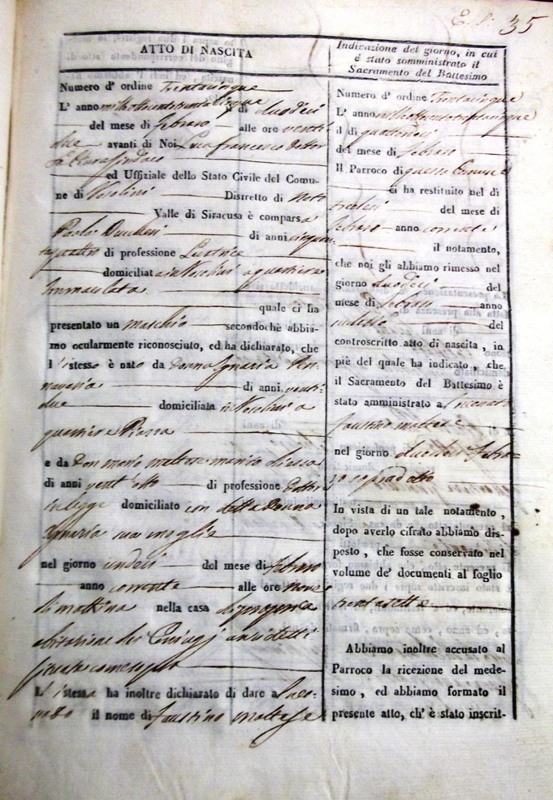 35
ATTO DI NASCITA
Numero d' ordine Trentacinque
L' anno mille ottocento trenta cinque il dì duodeci
del mese di Febraro alle ore venti
due avanti di Noi Gianfrancesco
Sindaco
ed Uffiziale dello Stato Civile del Comu-
ne di Rosolini Distretto di Noto
Valle di Siracusa è comparsa
Paola di anni cinquan-
taquattro di professione Levatrice
domiciliata in Rosolini a quartiere
Immacolata
quale ci ha
presentato un maschio secondochè abbia-
mo ocularmente riconosciuto, ed ha dichiarato, che
l' istesso è nato da Donna Ignazia
di anni venti
due domiciliata in Rosolini a
quartiere Piazza
e da Don Mario Maltese marito di essa
di anni vent'otto di professione Dottore
in legge domiciliato con detta Donna
Ignazia sua moglie
nel giorno undeci del mese di Febraro
anno corrente alle ore nove
di mattina nella casa di propria
abitazione dei Coniugi anzidetti
situata come sopra
L' istessa ha inoltre dichiarato di dare a
il nome di Faustino Maltese
Indicazione del giorno, in cui
è stato somministrato il
Sacramento del Battesimo
Numero d' ordine Trentacinque
L' anno mille ottocento trentacinque
il dì quattordeci
del mese di Febraro
Il Parroco di questa Comune
ci ha restituito nel dì
tredeci del mese di
Febraro anno corrente
il notamento,
che noi gli abbiamo rimesso nel
giorno duodeci del
mese di Febraro anno
del
controscritto atto di nascita, in
piè del quale ha indicato, che
il Sacramento del Battesimo è
stato amministrato a
Faustino Maltese
nel giorno duodeci Febra-
ro sopradetto
In vista di un tale notamento,
dopo averlo cifrato abbiamo dis-
posto, che fosse conservato nel
volume de' documenti al foglio
trentasette
Abbiamo inoltre accusato al
Parroco la ricezione del mede-
simo, ed abbiamo formato il
presente atto, ch' è stato inscrit-